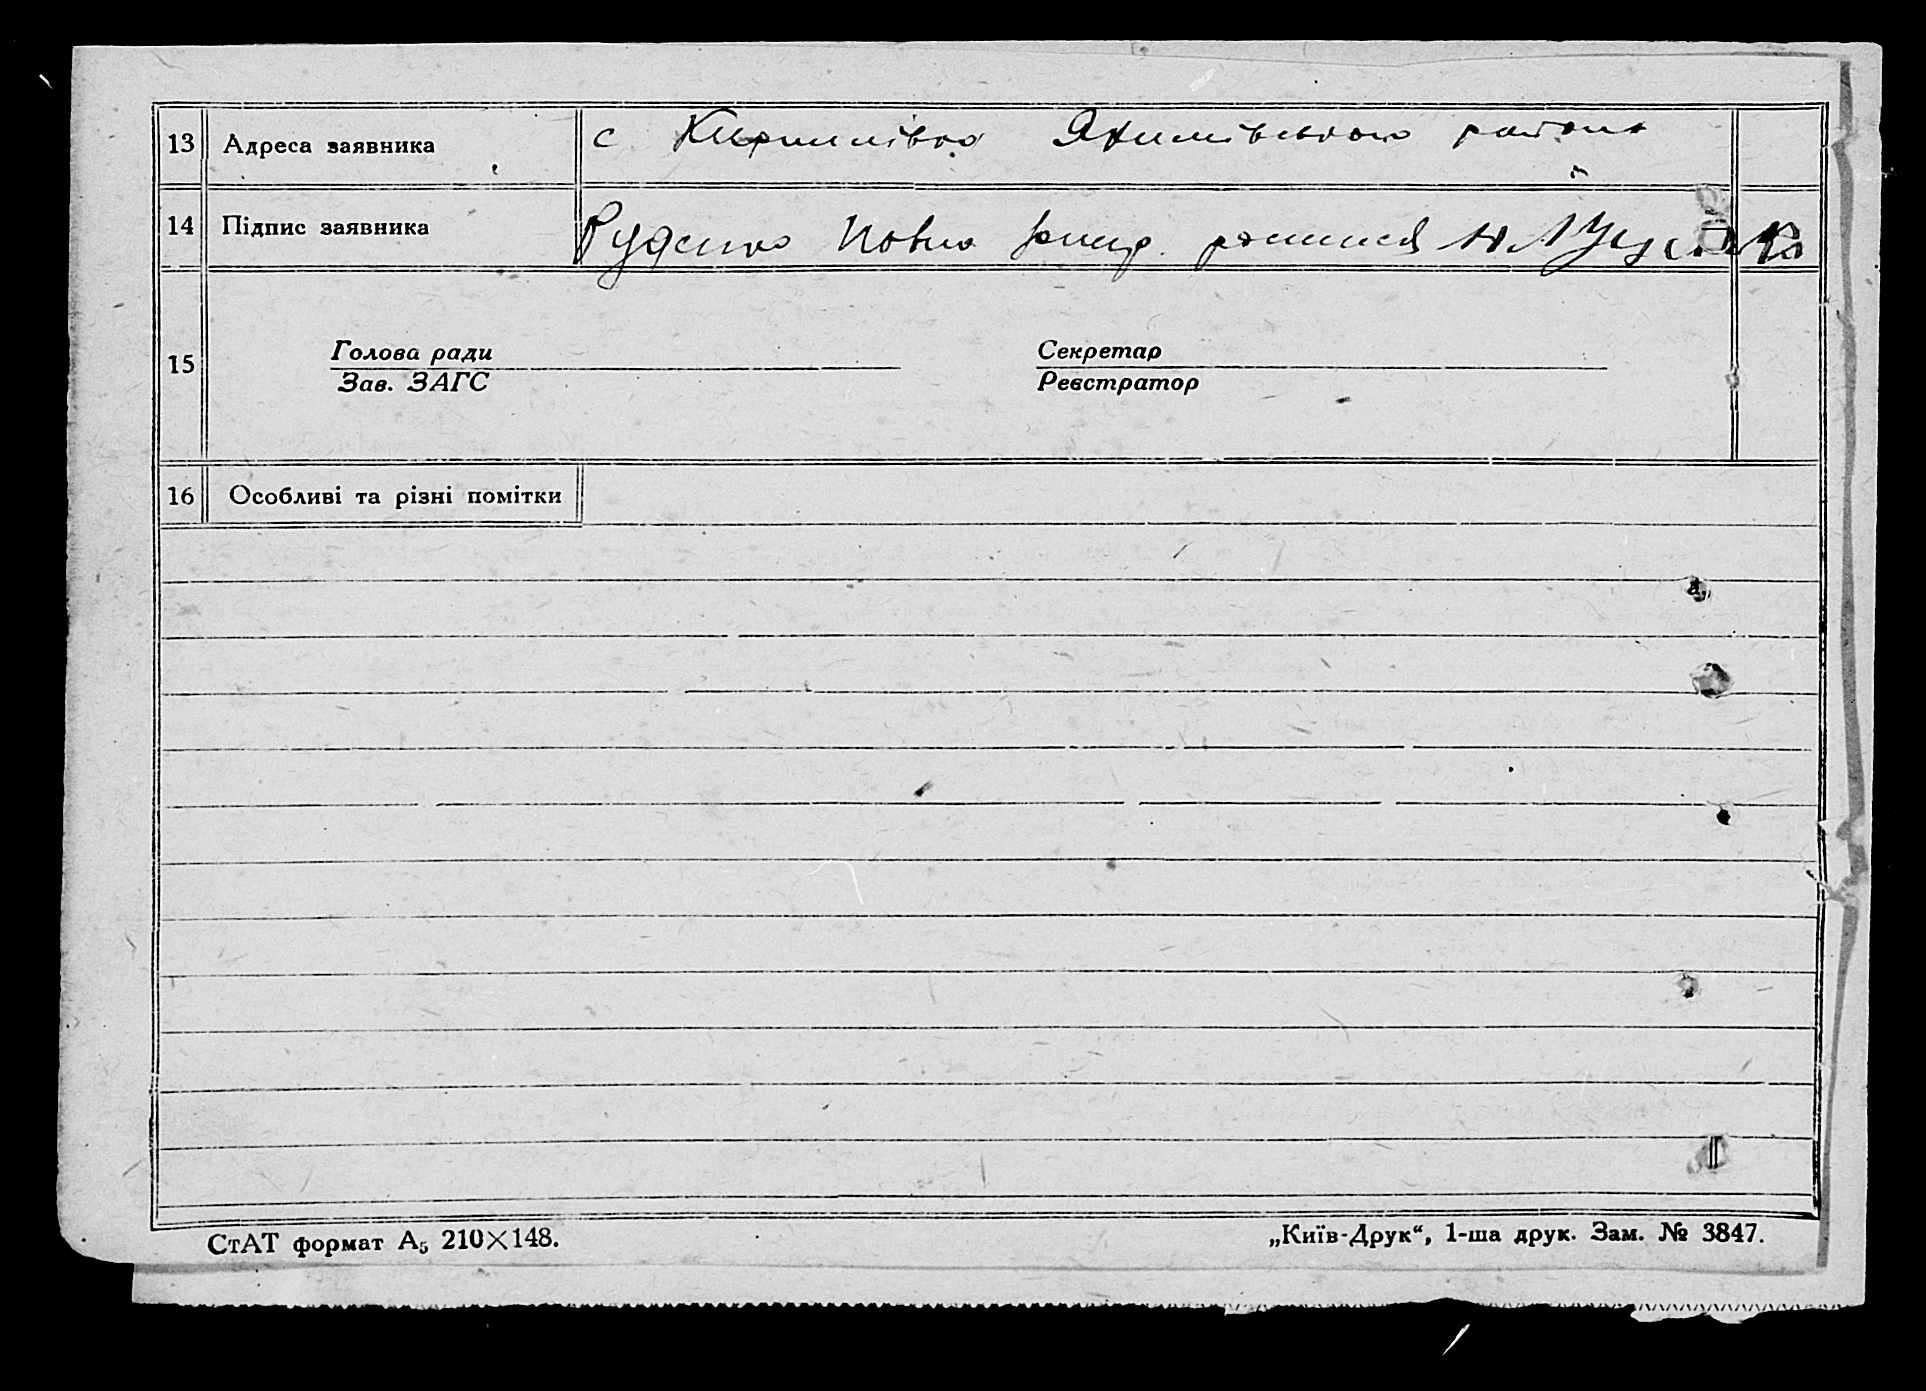 13 Адреса заявника с Кирилівка Якимівського району
14 Підпис заявника Руденко Павло
15 Голова ради Секретар
Зав. ЗАГС Реєстратор
16 Особливі та різні помітки
СтАТ формат А₅ 210×148. „Київ-Друк“, 1-ша друк. Зам. № 3847.